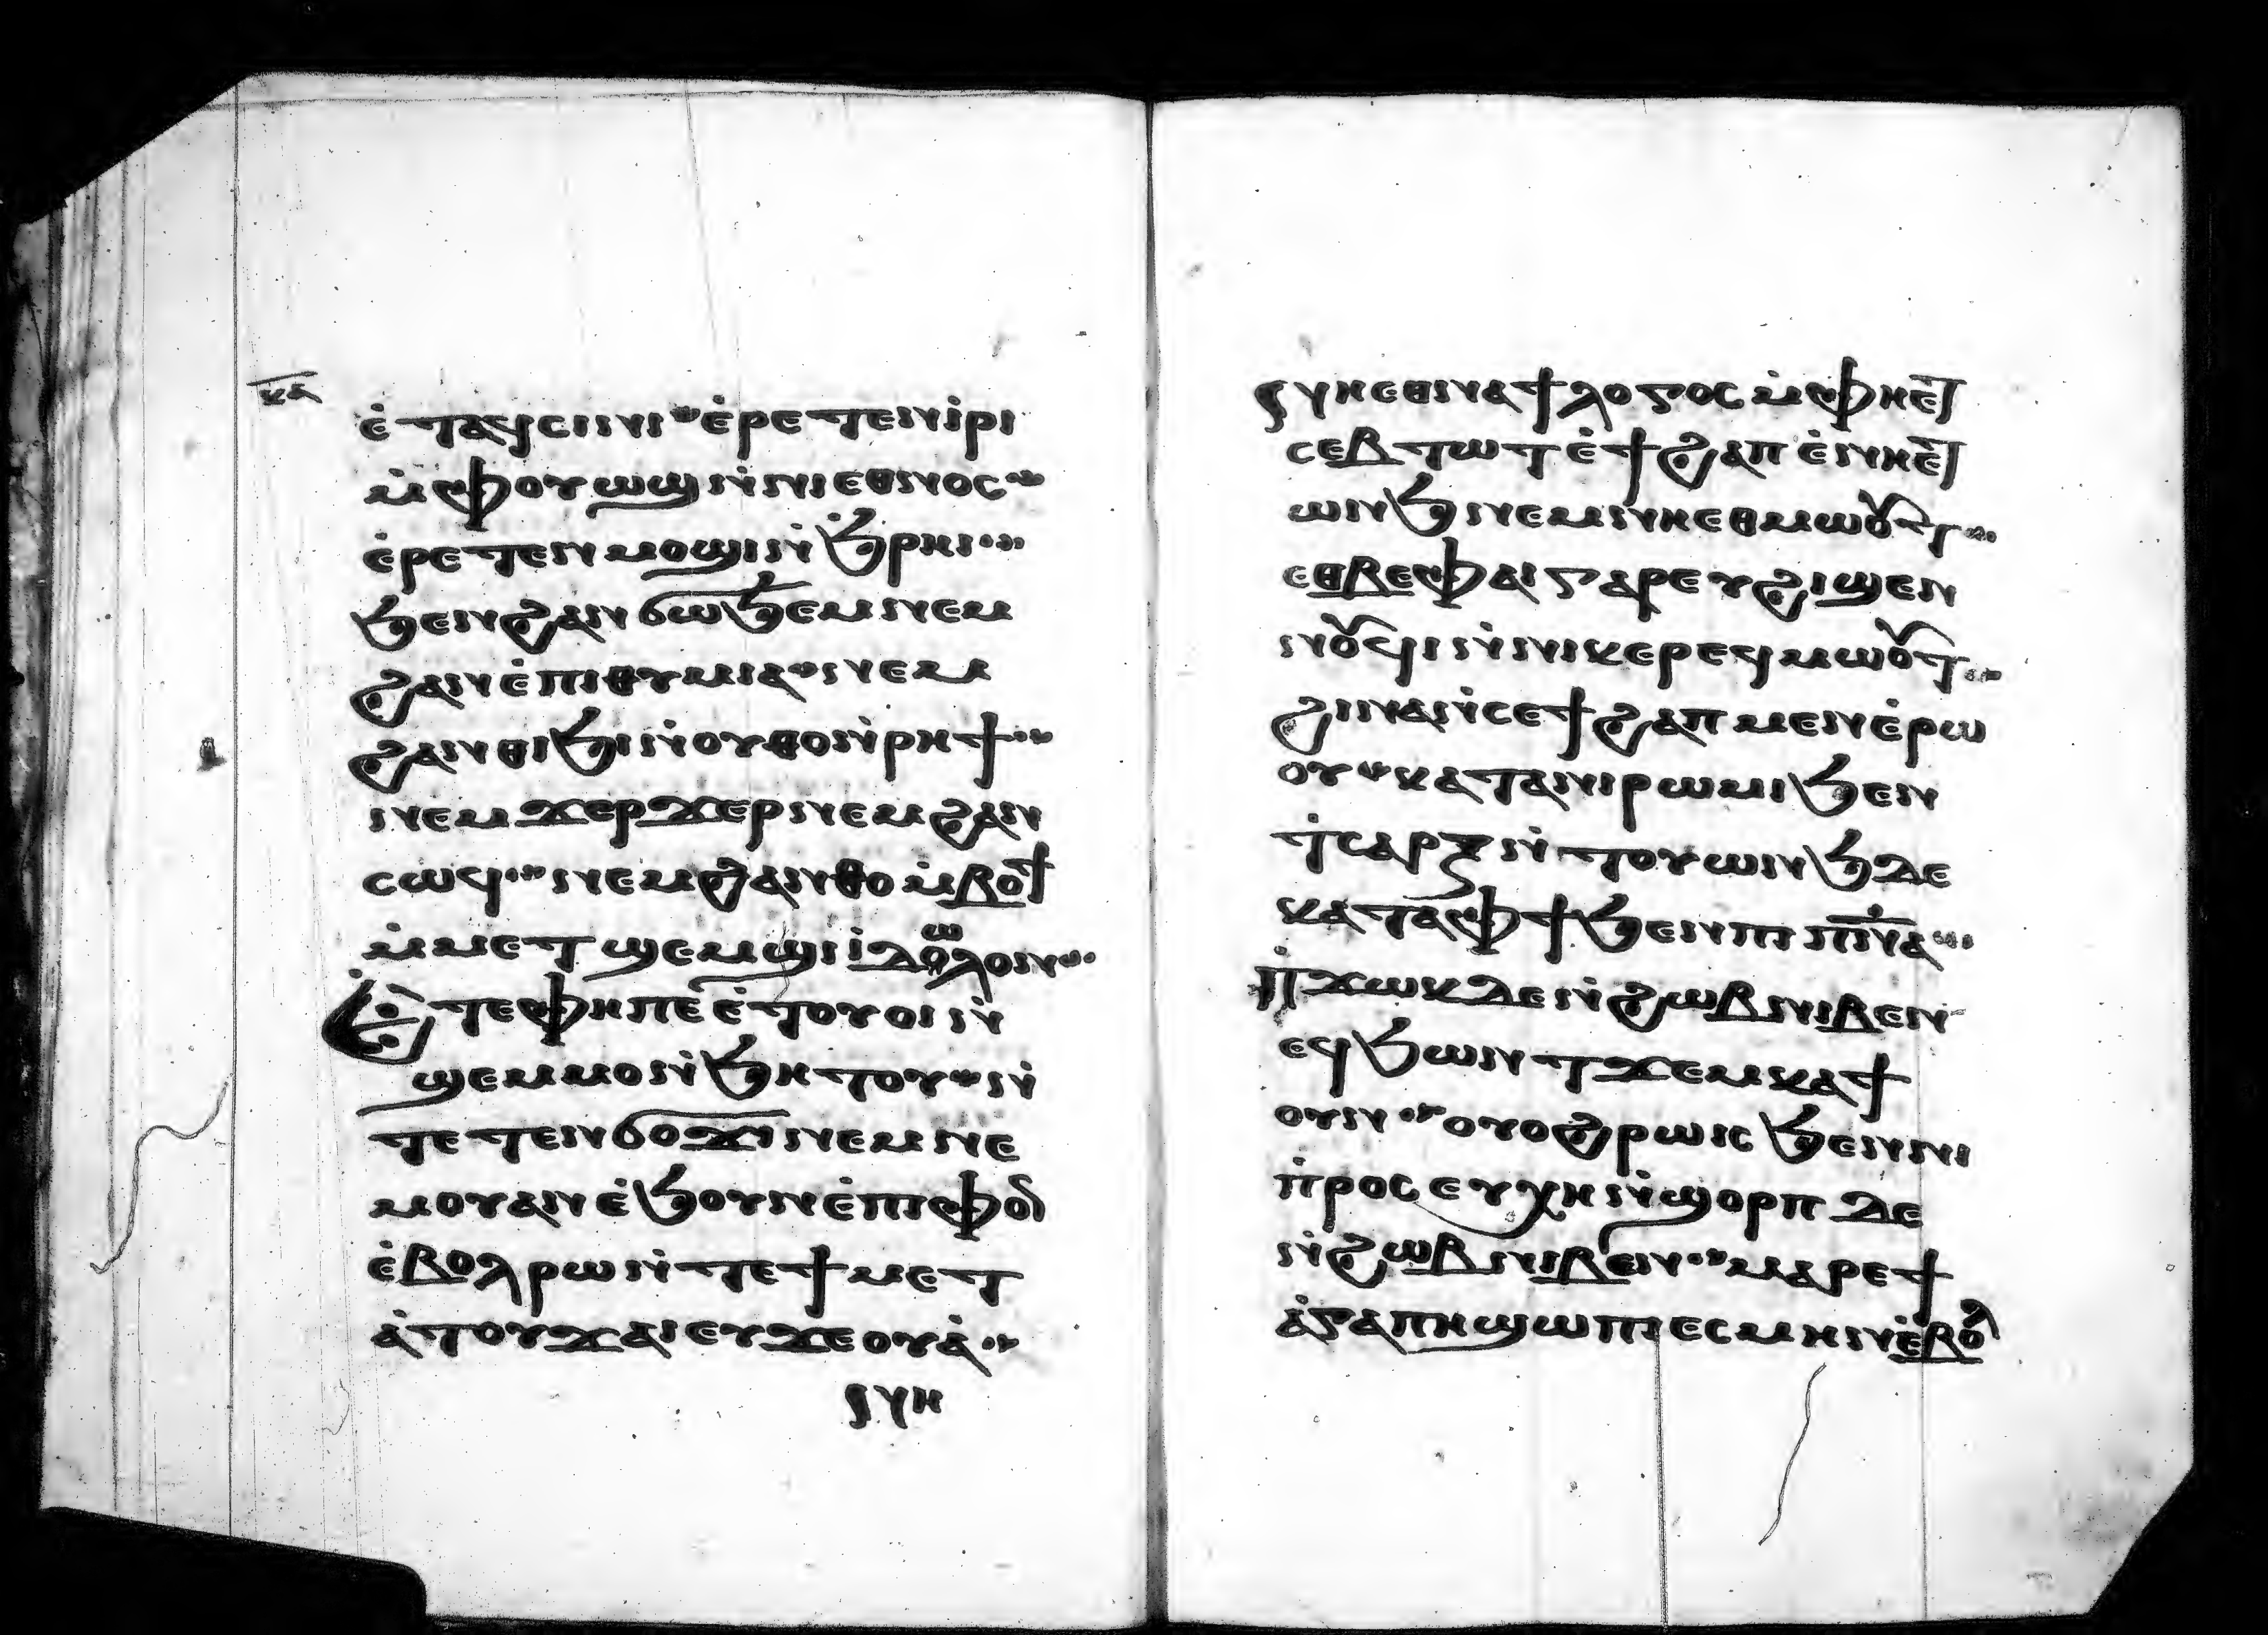 ⲕⲁ
ⲉ̇ⲧⲁϥⲥⲓⲛⲓ ⲉ̇ⲣⲉⲧⲉⲛⲓ̇ⲣⲓ
ⲙ̇ⲫⲟⲩⲱϣ ⲛ̇ⲛⲓⲉⲑⲛⲟⲥ
ⲉ̇ⲣⲉⲧⲉⲛⲙⲟϣⲓ ⲛ̇ϧ̇ⲣⲏⲓ
ϧⲉⲛϩⲁⲛϭⲱϧⲉⲙ ⲛⲉⲙ
ϩⲁⲛⲉ̇ⲡⲓⲑⲩⲙⲓⲁ ⲛⲉⲙ
ϩⲁⲛⲑⲓϧⲓ ⲛ̇ⲟⲩⲑⲟⲛ̇ⲣⲏϯ
ⲛⲉⲙϫⲉⲣϫⲉⲣ ⲛⲉⲙϩⲁⲛ
ⲥⲱϥ ⲛⲉⲙϩⲁⲛⲑⲟ ⲙ̇ⲃⲟϯ
ⲙ̇ⲙⲉⲧϣⲉⲙϣⲓ ⲓ̇ⲇⲟⲱⲗⲟⲛ
Ⲉ̇ⲧⲉⲫⲏⲡⲉ ⲉ̇ⲧⲟⲩⲟⲓ ⲛ̇
ϣⲉⲙⲙⲟ ⲛ̇ϧⲏⲧⲟⲩ ⲛ̇
ⲧⲉⲧⲉⲛϭⲟϫⲓ ⲛⲉⲙⲛⲉ
ⲙⲟⲩⲁⲛ ⲉ̇ϧⲟⲩⲛ ⲉ̇ⲡⲓⲫⲟⲛ
ⲉ̇ⲃⲟⲗ ⲣⲱ ⲛ̇ⲧⲉϯⲙⲉⲧ
ⲁ̇ⲧⲟⲩϫⲁⲓ ⲉⲩϫⲉⲟⲩⲁ̇
ⲛⲏ
ⲛⲏⲉⲑⲛⲁϯⲗⲟⲅⲟⲥ ⲙ̇ⲫⲏⲉⲧ
ⲥⲉⲃⲧⲱⲧ ⲉ̇ϯϩⲁⲡ ⲉ̇ⲛⲏⲉⲧ
ⲱⲛϧ ⲛⲉⲙⲛⲏⲉⲑⲙⲱⲟⲩⲧ
ⲉⲑⲃⲉⲫⲁⲓ ⲅⲁⲣ ⲉⲩϩⲓϣⲉⲛ
ⲛⲟⲩϥⲓ ⲛ̇ⲛⲓⲕⲉⲣⲉϥⲙⲱⲟⲩⲧ
ϩⲓⲛⲁ ⲛ̇ⲥⲉϯϩⲁⲡ ⲙⲉⲛ ⲉ̇ⲣⲱ
ⲟⲩ ⲕⲁⲧⲁⲛⲓⲣⲱⲙⲓ ϧⲉⲛ
ⲧ̇ⲥⲁⲣⲝ ⲛ̇ⲧⲟⲩⲱⲛϧ ⲇⲉ
ⲕⲁⲧⲁⲫϯ ϧⲉⲛⲡⲓⲡ̅ⲛ̅ⲁ̅
ⲡ̇ϫⲱⲕ ⲇⲉ ⲛ̇ϩⲱⲃ ⲛⲓⲃⲉⲛ
ⲉϥϧⲱⲛⲧ ϫⲉⲙⲕⲁϯ
ⲟⲩⲛ ⲟⲩⲟϩ ⲣⲱⲓⲥ ϧⲉⲛⲛⲓ
ⲡ̇ⲣⲟⲥⲉⲩⲭⲏ ⲛ̇ϣⲟⲣⲡ ⲇⲉ
ⲛ̇ϩⲱⲃ ⲛⲓⲃⲉⲛ ⲙⲁⲣⲉϯ
ⲁ̇ⲅⲁⲡⲏ ϣⲱⲡⲓ ⲉⲥⲙⲏⲛ ⲉ̇ⲃⲟⲗ